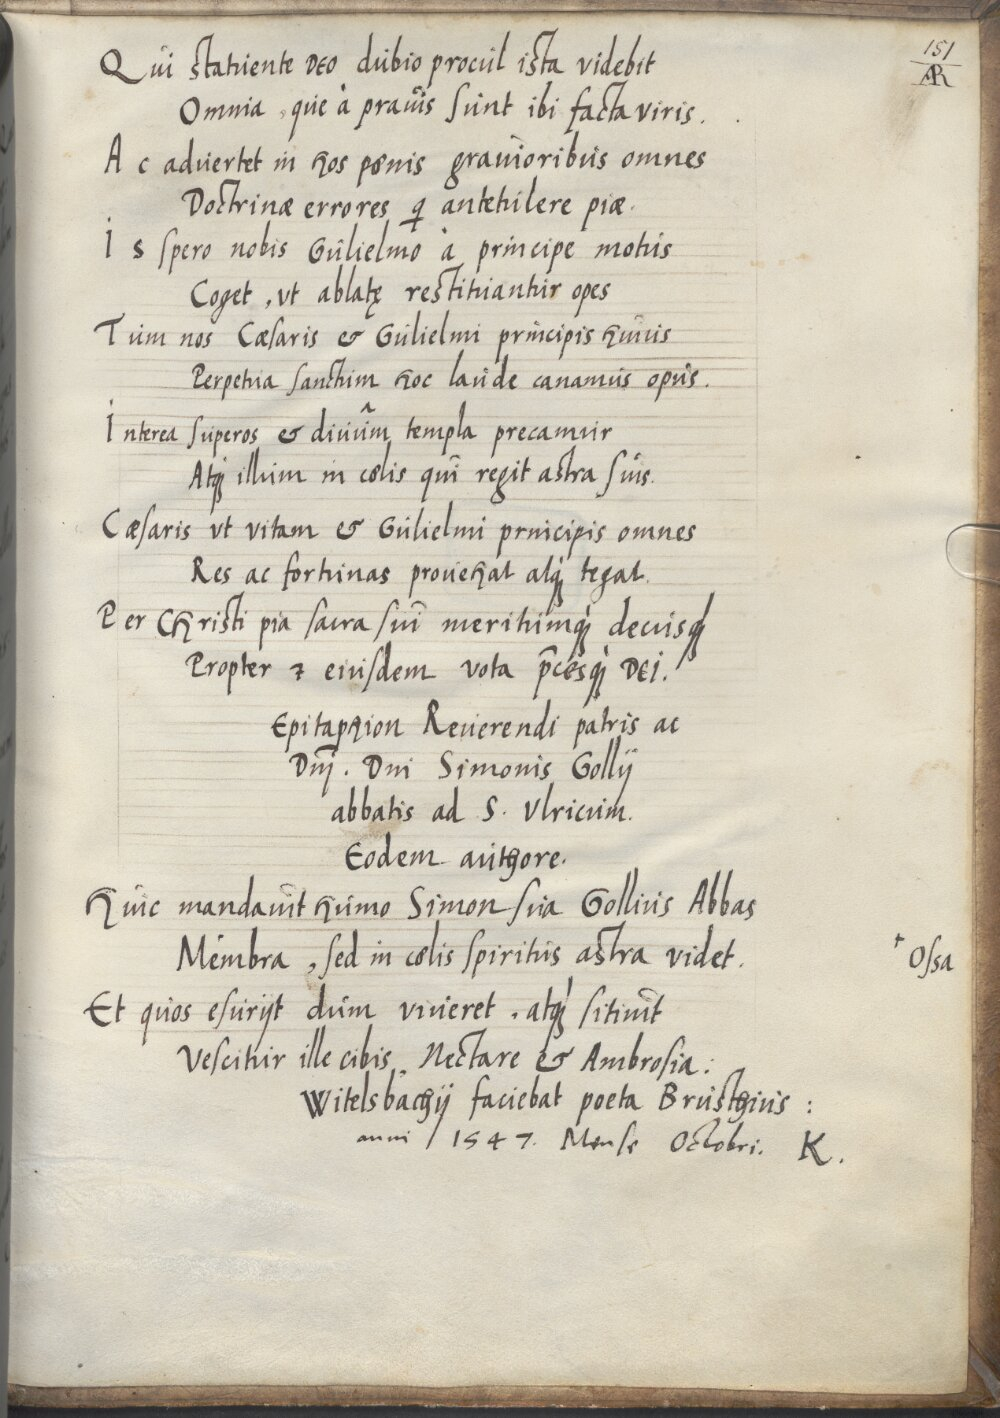 151
AR
Qui statuente DEO dubio procul ista videbit
Omnia, que à prauis sunt ibi facta viris.
Ac aduertet in hos pœnis grauioribus omnes
Doctrinæ errores q antetulere piæ.
Is spero nobis Gulielmo à principe motus
Coget, vt ablatę restituantur opes
Tum nos Cæsaris & Gulielmi principis huius
Perpetua sanctum hoc laude canamus opus.
Interea superos & diuûm templa precamur
Atq; illum in cœlis qui regit astra suis.
Cæsaris vt vitam & Gulielmi principis omnes
Res ac fortunas prouehat atq; tegat.
Per Christi pia sacra sui meritumq; decusq;
Propter & eiusdem vota p̄cesq; DEI.
Epitaphion Reuerendi patris ac
Dnj. Dni Simonis Gollij
abbatis ad S. Vlricum.
Eodem authore.
Huic mandauit humo Simon sua Gollius Abbas
Membra, sed in cœlis spiritus astra videt.
† Ossa
Et quos esurijt dum viueret, atq; sitiuit
Vescitur ille cibis, Nectare & Ambrosia:
Witelsbachij faciebat poeta Brusthius:
anni 1547. Mense Octobri. K.